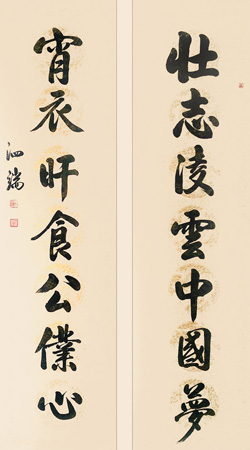 壮志凌雲中國夢
宵衣旰食公僕心
泗瑞